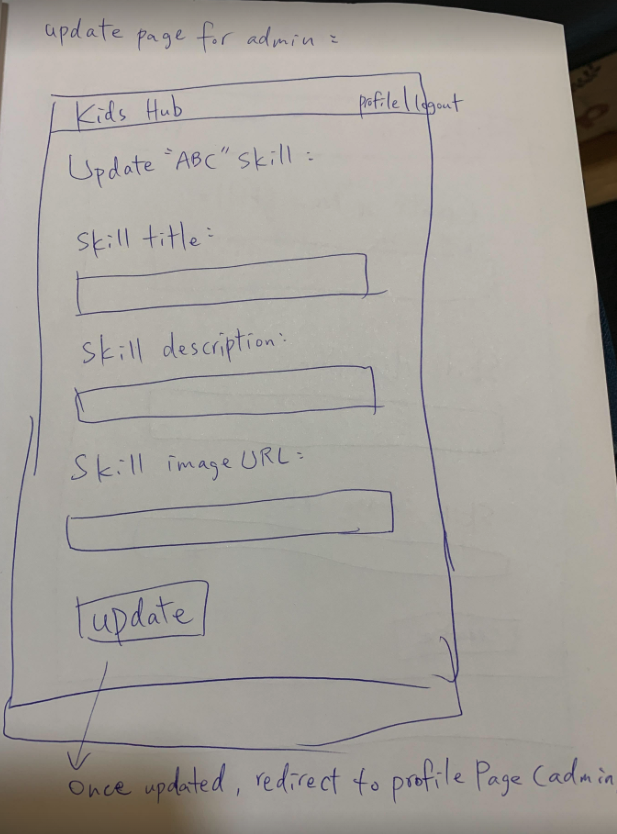 update page for admin :
Kids Hub profile | logout
Update "ABC" skill :
Skill title :
Skill description :
Skill image URL :
update
Once updated, redirect to profile Page (admin